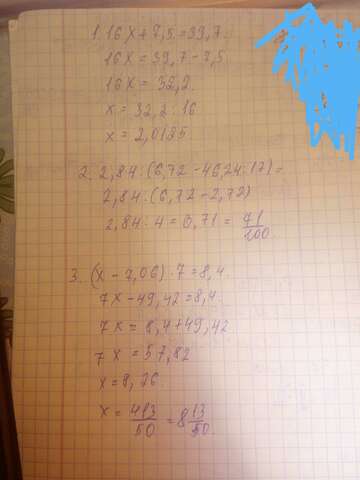 1. 16x + 7,5 = 39,7.
16x = 39,7 - 7,5.
16x = 32,2.
x = 32,2 : 16
x = 2,0125
2. 2,84 : (6,72 - 46,24 : 17) =
2,84 : (6,72 - 2,72)
2,84 : 4 = 0,71 = 71/100.
3. (x - 7,06) · 7 = 8,4.
7x - 49,42 = 8,4.
7x = 8,4 + 49,42
7x = 57,82
x = 8,26
x = 413/50 = 8 13/50.